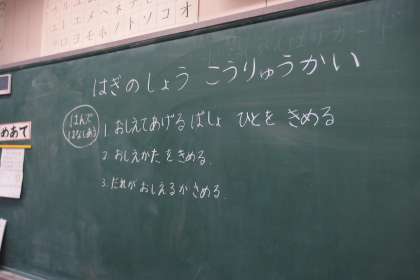 エルエメヘネテセケエ
オロヨモホノトソコオ
はぎのしょう こうりゅうかい
はんで
はなしあう
1. おしえてあげる ばしょ ひとを きめる
2. おしえかたをきめる。
3. だれが おしえるか きめる。
めあて